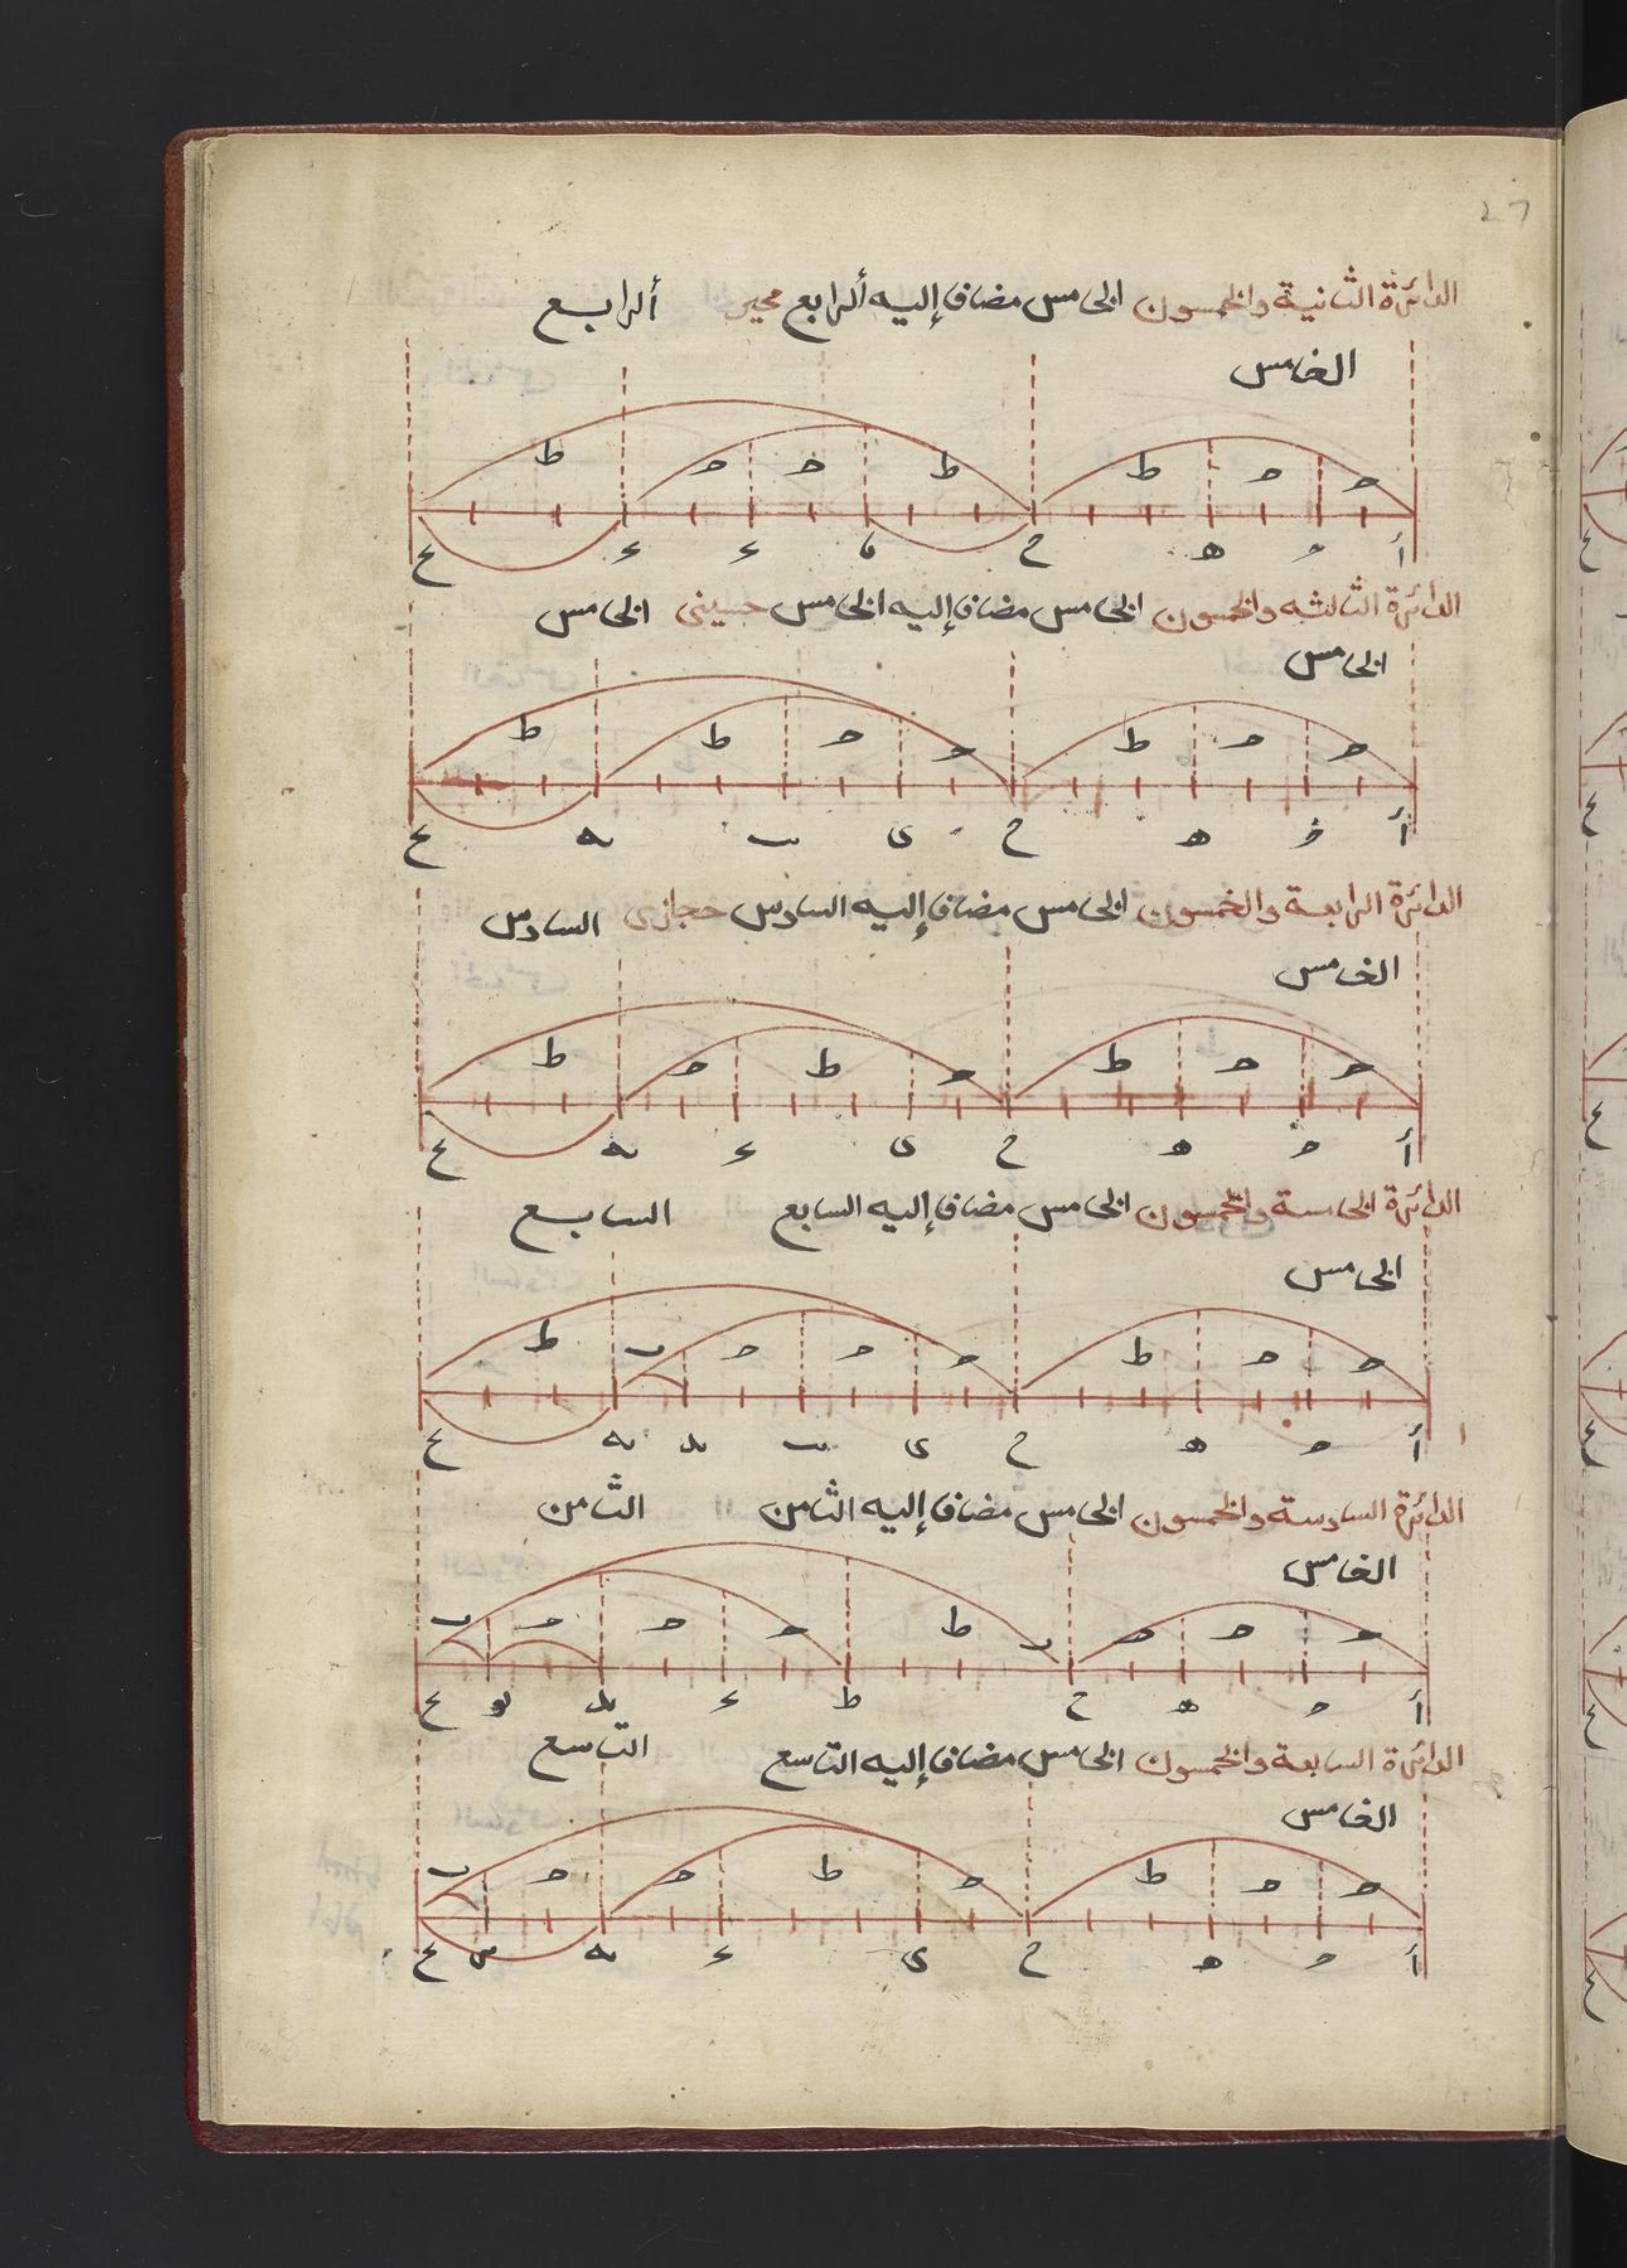 ٢٦
الدائرة الثانية والخمسون الخامس مضاف إليه ألرابع محير ألرابع
الخامس
ط ح ح ط ط ح ح
أ ح
الدائرة الثالثه والخمسون الخامس مضاف إليه الخامس حسينى الخامس
الخامس
ط ط ح ح ط ح ح
أ ح
الدائرة الرابعة والخمسون الخامس مضاف إليه السادس حجازى السادس
الخامس
ط ح ط ح ط ح ح
أ ح
الدائرة الخامسة والخمسون الخامس مضاف إليه السابع السابع
الخامس
ط ب ح ح ح ط ح ح
أ ح
الدائرة السادسة والخمسون الخامس مضاف إليه الثامن الثامن
الخامس
ب ح ح ح ط ب ح ح ح
أ ح ط
الدائرة السابعة والخمسون الخامس مضاف إليه التاسع التاسع
الخامس
ب ح ح ط ح ط ح ح
أ ح